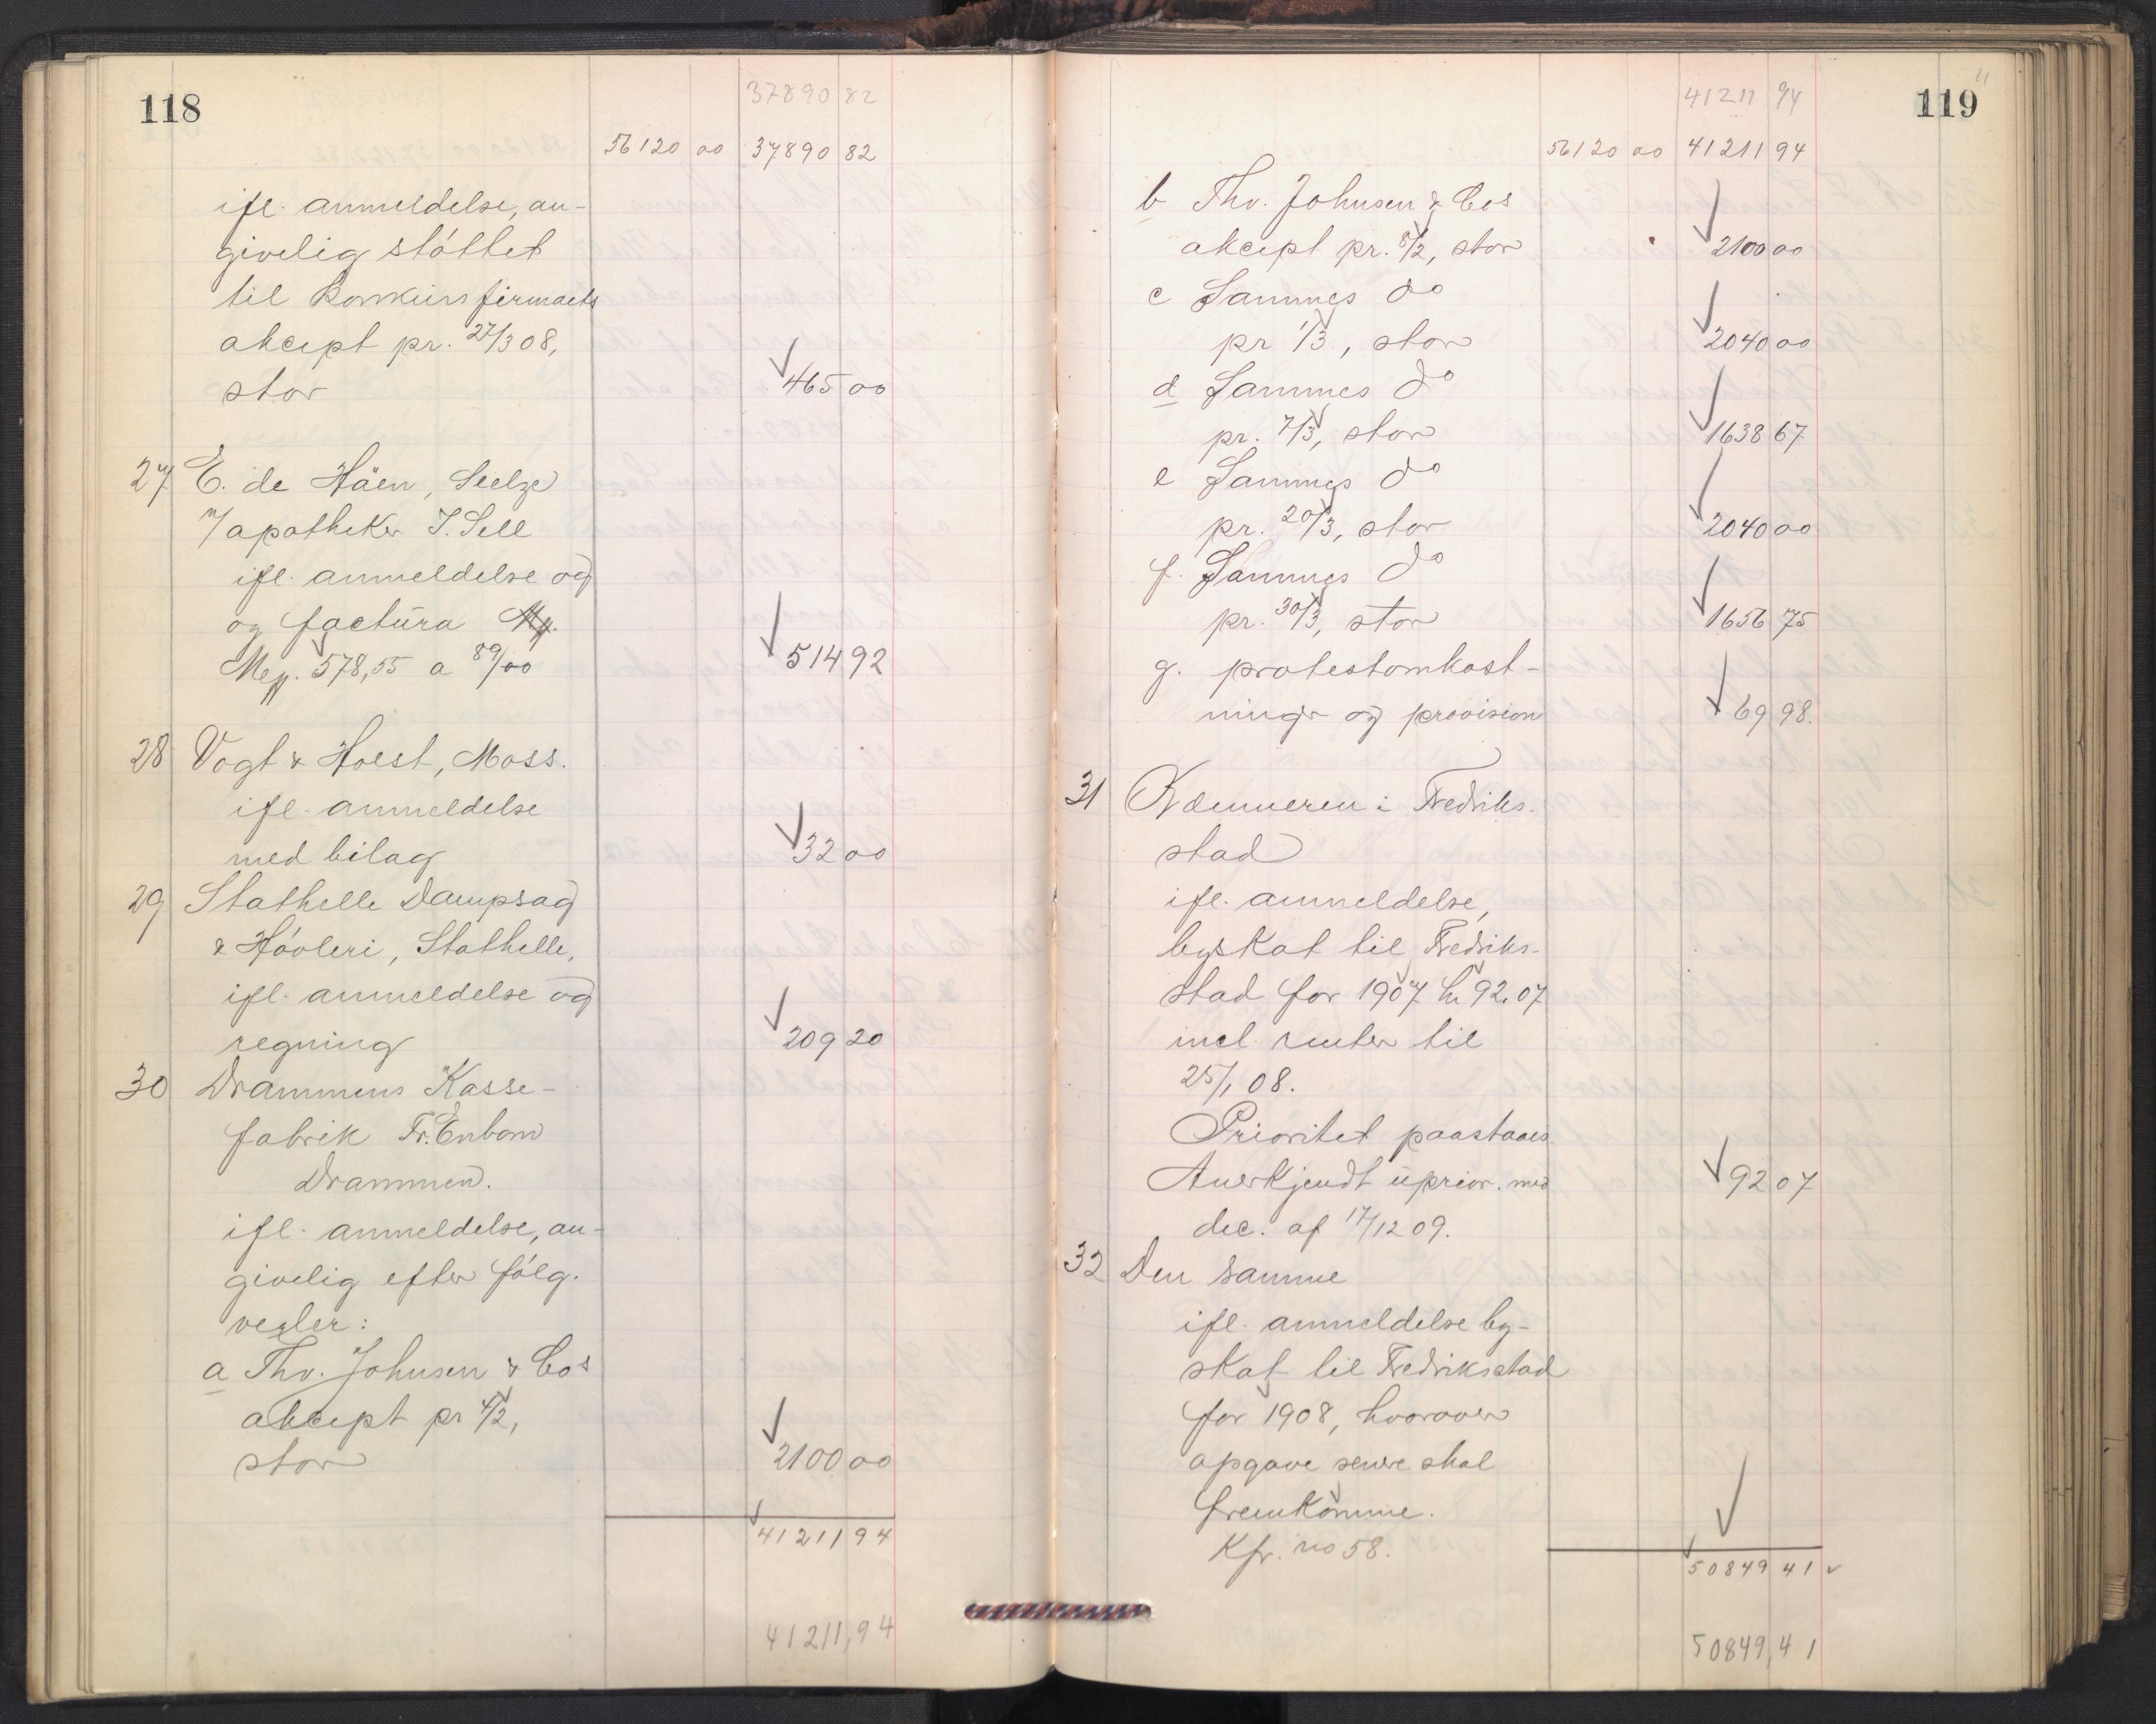 118
37890 82
56120 00 37890 82
ifl. anmeldelse, an-
givelig støttet
til konkursfirmaets
akcept pr. 27/3 08,
stor 465 00
27 E. de Häen, Seelze
v/ apotheker I. Sell
ifl. anmeldelse og
og factura
Mg. 578,55 a 89/00 514 92
28 Vogt & Holst, Moss.
ifl. anmeldelse
med bilag 32 00
29 Stathelle Dampsag
& Høvleri, Stathelle,
ifl. anmeldelse og
regning 209 20
30 Drammens Kasse-
fabrik Fr. Enbom
Drammen.
ifl. anmeldelse, an-
givelig efter følg.
vexler:
a Thv. Johnsen & Cos
akcept pr 4/2,
stor 2100 00
41211 94
41211,94
119
41211 94
56120 00 41211 94
b Thv. Johnsen & Cos
akcept pr. 8/2, stor 2100 00
c Sammes do
pr 1/3, stor 2040 00
d Sammes do
pr. 7/3, stor 1638 67
e Sammes do
pr. 20/3, stor 2040 00
f. Sammes do
pr. 30/3, stor 1656 75
g. protestomkost-
ninger og provision 69 98.
31 Kæmneren i Fredriks-
stad
ifl. anmeldelse,
byskat til Fredriks-
stad for 1907 kr 92.07
incl. renter til
25/1 08.
Prioritet paastaaes.
Anerkjendt uprior. med 92 07
dec. af 17/12 09.
32 Den samme
ifl. anmeldelse by-
skat til Fredriksstad
for 1908, hvorover
opgave senere skal
fremkomme.
Kfr. no 58.
50849 41
50849,41